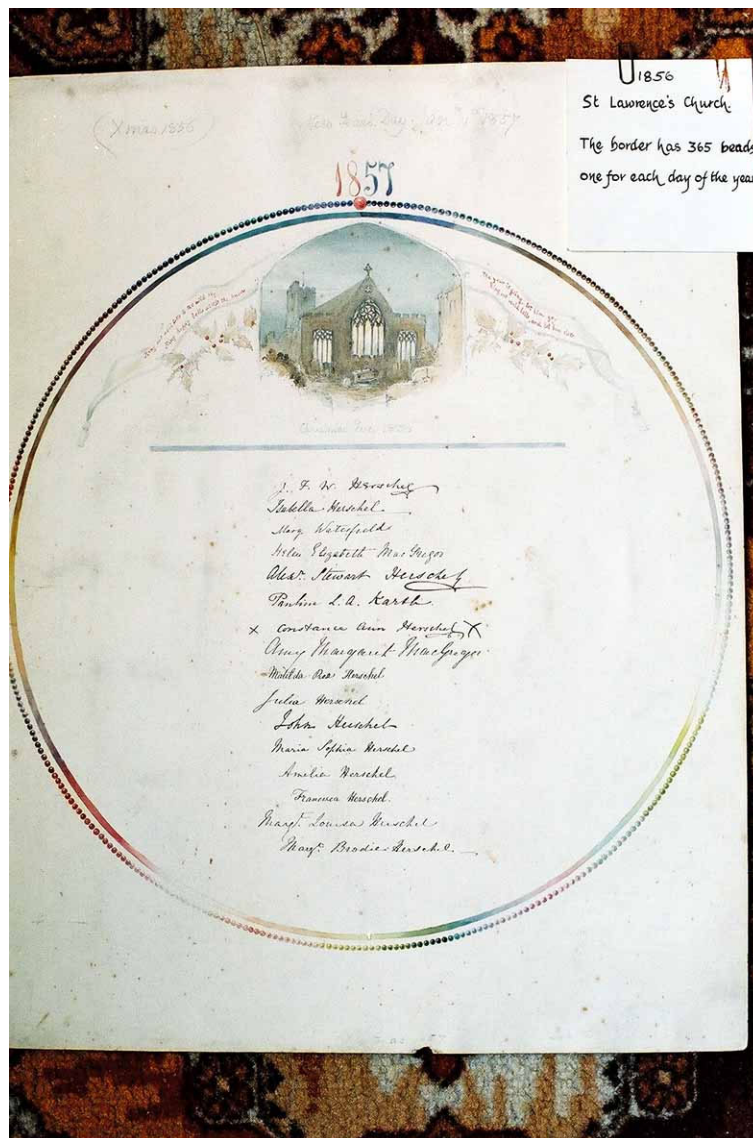 1856
St Lawrence's Church.
The border has 365 beads
one for each day of the year
(Xmas 1856)
New Years Day: Jany 1st 1857
1857
Christmas Eve 1856
J. F. W. Herschel
Isabella Herschel.
Mary Waterfield
Helen Elizabeth MacGregor
Alexr. Stewart Herschel
Pauline L. A. Karth.
X Constance Ann Herschel X
Amy Margaret MacGregor
Matilda Rose Herschel
Julia Herschel
John Herschel
Maria Sophia Herschel
Amelia Herschel
Francisca Herschel.
Margt. Louisa Herschel
Margt. Brodie Herschel.